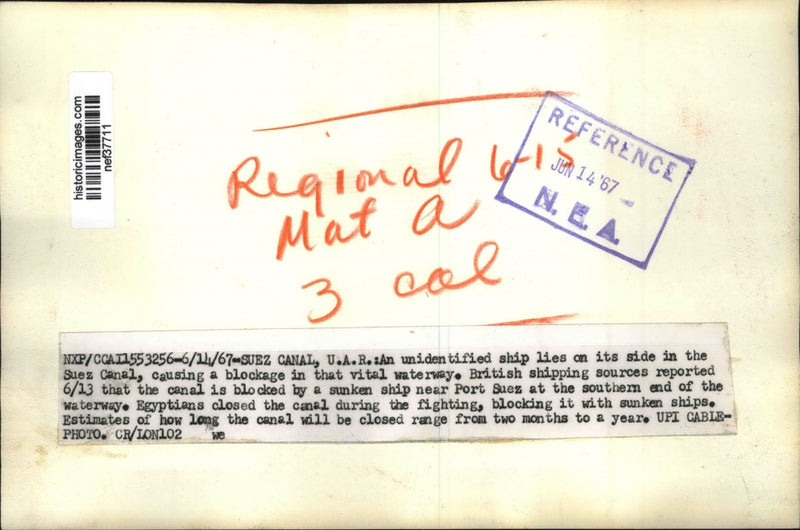 historicimages.com
nef37711
REFERENCE
JUN 14 '67
N. E. A.
Regional 6-15
Mat a
3 col
NXP/CGAI1553256-6/14/67-SUEZ CANAL, U.A.R.:An unidentified ship lies on its side in the
Suez Canal, causing a blockage in that vital waterway. British shipping sources reported
6/13 that the canal is blocked by a sunken ship near Port Suez at the southern end of the
waterway. Egyptians closed the canal during the fighting, blocking it with sunken ships.
Estimates of how long the canal will be closed range from two months to a year. UPI CABLE-
PHOTO. CR/LON102 we